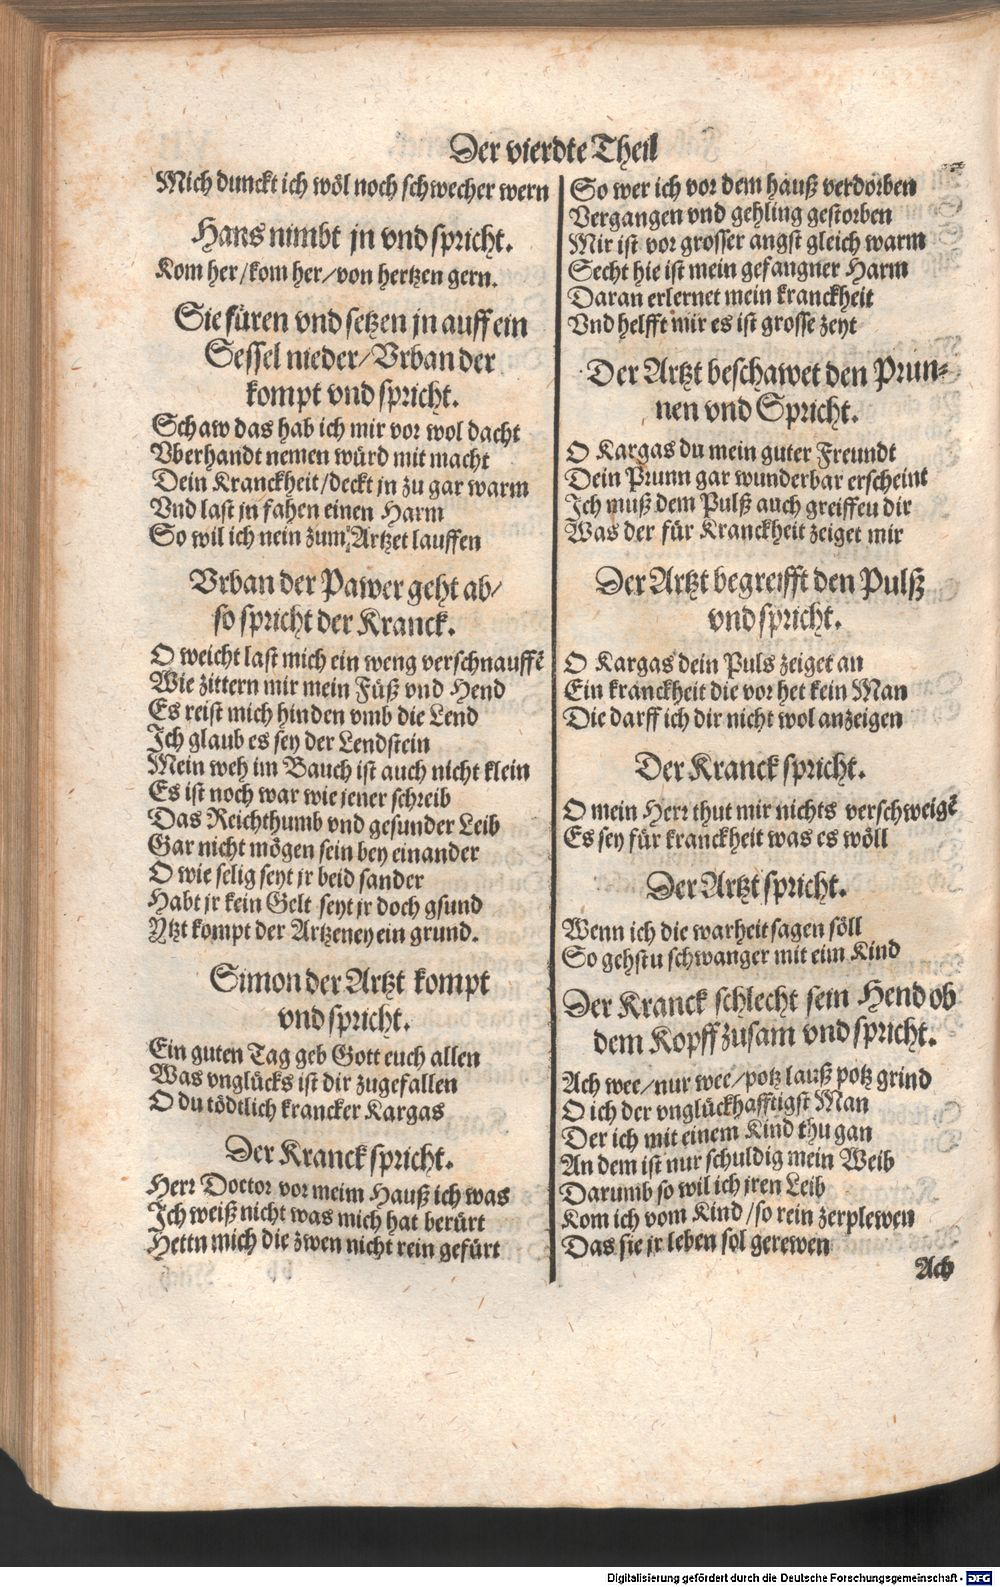 Der vierdte Theil
Mich dunckt ich wöl noch schwecher wern
Hans nimbt jn vnd spricht.
Kom her/kom her/von hertzen gern.
Sie füren vnd setzen jn auff ein
Sessel nieder/Vrban der
kompt vnd spricht.
Schaw das hab ich mir vor wol dacht
Vberhandt nemen würd mit macht
Dein Kranckheit/deckt jn zu gar warm
Vnd last jn fahen einen Harm
So wil ich nein zum Artzet lauffen
Vrban der Pawer geht ab/
so spricht der Kranck.
O weicht last mich ein weng verschnauffē
Wie zittern mir mein Füß vnd Hend
Es reist mich hinden vmb die Lend
Ich glaub es sey der Lendstein
Mein weh im Bauch ist auch nicht klein
Es ist noch war wie jener schreib
Das Reichthumb vnd gesunder Leib
Gar nicht mögen sein bey einander
O wie selig seyt jr beid sander
Habt jr kein Gelt seyt jr doch gsund
Ytzt kompt der Artzeney ein grund.
Simon der Artzt kompt
vnd spricht.
Ein guten Tag geb Gott euch allen
Was vnglücks ist dir zugefallen
O du tödtlich krancker Kargas
Der Kranck spricht.
Herr Doctor vor meim Hauß ich was
Ich weiß nicht was mich hat berürt
Hettn mich die zwen nicht rein gefürt
So wer ich vor dem hauß verdorben
Vergangen vnd gehling gestorben
Mir ist vor grosser angst gleich warm
Secht hie ist mein gefangner Harm
Daran erlernet mein kranckheit
Vnd helfft mir es ist grosse zeyt
Der Artzt beschawet den Prun⸗
nen vnd Spricht.
O Kargas du mein guter Freundt
Dein Prunn gar wunderbar erscheint
Ich muß dem Pulß auch greiffeu dir
Was der für Kranckheit zeiget mir
Der Artzt begreifft den Pulß
vnd spricht.
O Kargas dein Puls zeiget an
Ein kranckheit die vor het kein Man
Die darff ich dir nicht wol anzeigen
Der Kranck spricht.
O mein Herr thut mir nichts verschweigē
Es sey für kranckheit was es wöll
Der Artzt spricht.
Wenn ich die warheit sagen söll
So gehstu schwanger mit eim Kind
Der Kranck schlecht sein Hend ob
dem Kopff zusam vnd spricht.
Ach wee/nur wee/potz lauß potz grind
O ich der vnglückhafftigst Man
Der ich mit einem Kind thu gan
An dem ist nur schuldig mein Weib
Darumb so wil ich jren Leib
Kom ich vom Kind/so rein zerplewen
Das sie jr leben sol gerewen
Ach
Digitalisierung gefördert durch die Deutsche Forschungsgemeinschaft - DFG